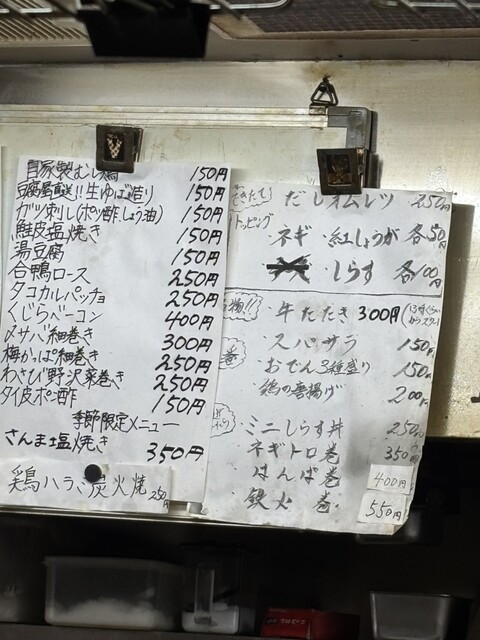 自家製むし鶏 150円
豆腐屋直送!!生ゆば造り 150円
ガツ刺し(ポン酢、しょう油) 150円
鮭皮塩焼き 150円
湯豆腐 150円
合鴨ロース 250円
タコカルパッチョ 250円
くじらベーコン 400円
〆サバ細巻き 300円
梅かっぱ細巻き 250円
わさび野沢菜巻き 250円
タイ皮ポン酢 150円
季節限定メニュー
さんま塩焼き 350円
鶏ハラミ炭火焼 250円
できたて! だしオムレツ 250円
トッピング
・ネギ・紅しょうが 各50円
・しらす 各100円
名物!! ・牛たたき 300円
・スパサラ 150円
・おでん3種盛り 150円
・鶏の唐揚げ 200円
・ミニしらす丼 250円
・ネギトロ巻 350円
・はんぱ巻 400円
・鉄火巻 550円